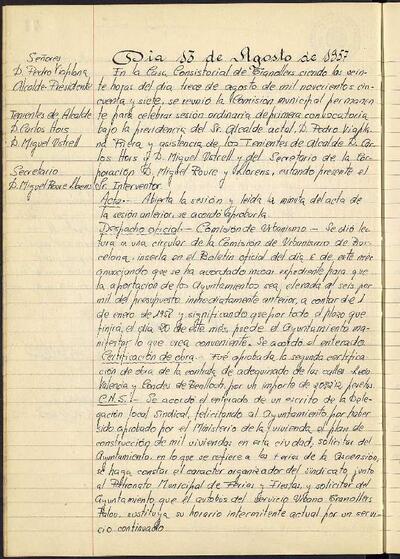 Día 13 de Agosto de 1957
Señores
D. Pedro Viaplana
Alcalde-Presidente
Tenientes de Alcalde
D. Carlos Hois
D. Miguel Vetrell
Secretario
D. Miguel Roure Llorens
En la Casa Consistorial de Granollers siendo las vein-
te horas del día trece de agosto de mil novecientos cin-
cuenta y siete, se reunió la Comisión municipal permanen
te para celebrar sesión ordinaria de primera convocatoria
bajo la presidencia del Sr. Alcalde actal. D. Pedro Viapla
na Riera y asistencia de los Tenientes de Alcalde D. Car
los Hois y D. Miguel Vetrell y del Secretario de la Cor-
poración D. Miguel Roure y Llorens, estando presente el
Sr. Interventor.
Acta.- Abierta la sesión y leída la minuta del acta de
la sesión anterior, se acordó aprobarla.
Despacho oficial.- Comisión de Urbanismo.- Se dió lec
tura a una circular de la Comisión de Urbanismo de Bar
celona, inserta en el Boletín oficial del día 6 de este mes
anunciando que se ha acordado incoar expediente para que
la aportación de los Ayuntamientos sea elevada al seis por
mil del presupuesto inmediatamente anterior, a contar de 1
de enero de 1958 y significando que por todo el plazo que
finirá el día 20 de este mes, puede el Ayuntamiento ma-
nifestar lo que crea conveniente. Se acordó el enterado.
Certificación de obra.- Fué aprobada la segunda certifica
ción de obra de la contrata de adoquinado de las calles
Valencia y Condes de Benlloch, por un importe de pesetas
C.N.S.- Se acordó el enterado de un escrito de la Dele-
gación local Sindical, felicitando al Ayuntamiento por haber
sido aprobado por el Ministerio de la Vivienda el plan de
construcción de mil viviendas en esta ciudad, solicitar del
Ayuntamiento, en lo que se refiere a las Ferias de la Ascensión,
se haga constar el carácter organizador del Sindicato junto
al Patronato Municipal de Ferias y Fiestas, y solicitar del
Ayuntamiento que el autobus del Servicio Urbano Granollers
Palou, sustituya su horario intermitente actual por un servi-
cio continuado